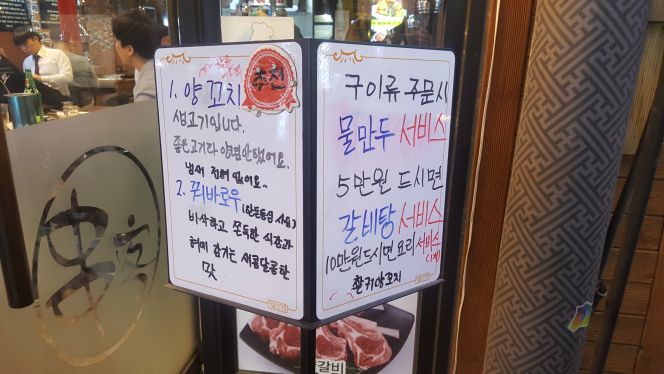 추천
1. 양꼬치
생고기입니다.
좋은고기라 양념안했어요.
냄새 전혀 없어요~
2. 꿔바로우
(한돈등심 사용)
바삭하고 쫀득한 식감과
혀에 감기는 새콤달콤한
맛
구이류 주문시
물만두 서비스
5만원 드시면
갈비탕 서비스
10만원드시면요리 서비스
환거양꼬치
갈비
串